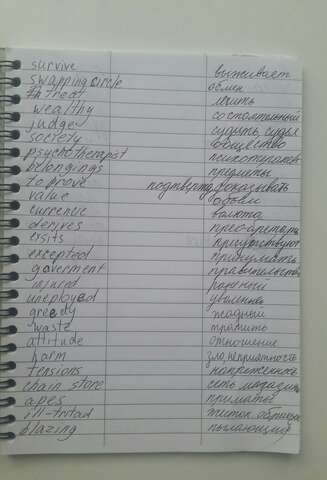 survive выживает
swapping circle обмен
to treat лечить
wealthy состоятельный
judge судить, судья
society общество
psychotherapist психотерапевт
belongings предметы
to prove подтвержд, доказывать
value объём
currencie валюта
derives
exsits присутствуют
excepted принимать
goverment правительство
injured раненый
uneployed уволенна
greedy жадный
waste тратить
attitude отношение
harm зло, неприятность
tensions напряженность
chain store сеть магазин
apes приматы
ill-tritad
blazing пылающий